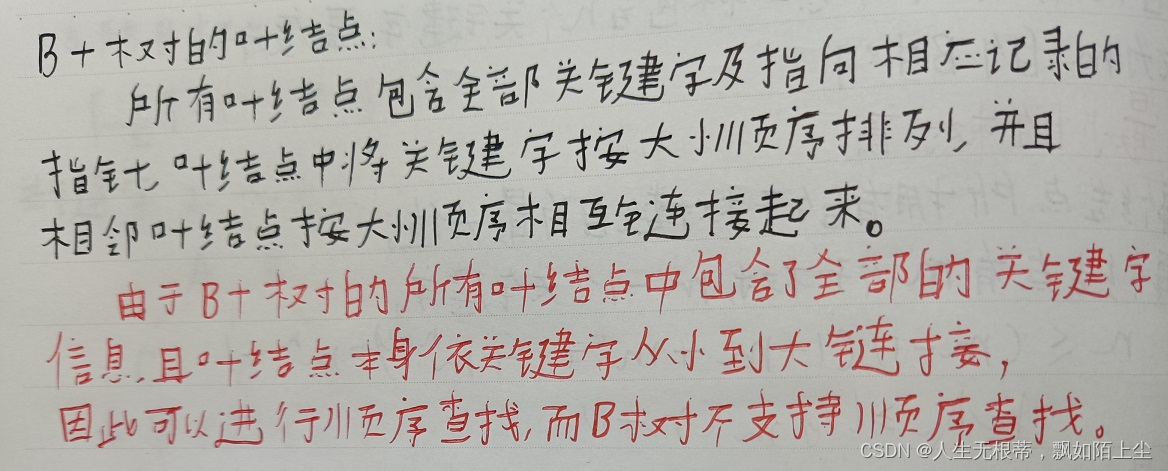 B+树的叶结点:
所有叶结点包含全部关键字及指向相应记录的
指针,叶结点中将关键字按大小顺序排列,并且
相邻叶结点按大小顺序相互链接起来。
由于B+树的所有叶结点中包含了全部的关键字
信息,且叶结点本身依关键字从小到大链接,
因此可以进行顺序查找,而B树不支持顺序查找。
CSDN @人生无根蒂,飘如陌上尘